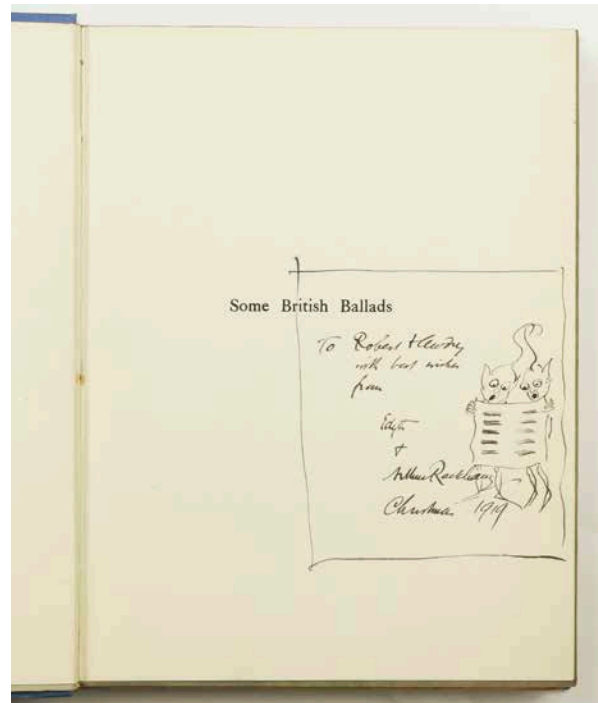 Some British Ballads
To Robert &
with best wishes
from
Edyth
&
Arthur Rackham
Christmas 1919